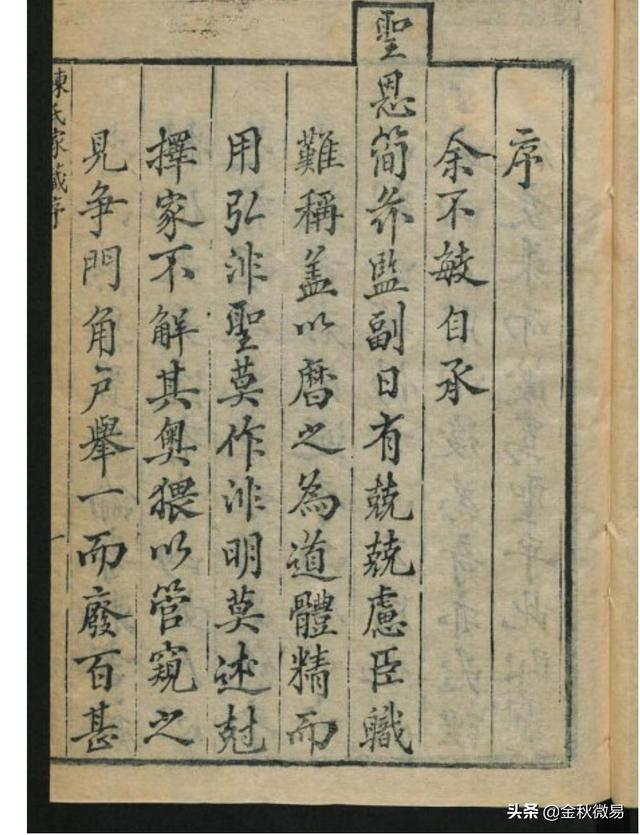 序
余不敏自承
聖恩簡命監副日有兢兢慮臣職
難稱盖以曆之為道體精而
用弘非聖莫作非明莫述尅
擇家不解其奥猥以管窺之
見争門角户舉一而廢百甚
陳氏家藏序
一
头条 @金秋微易